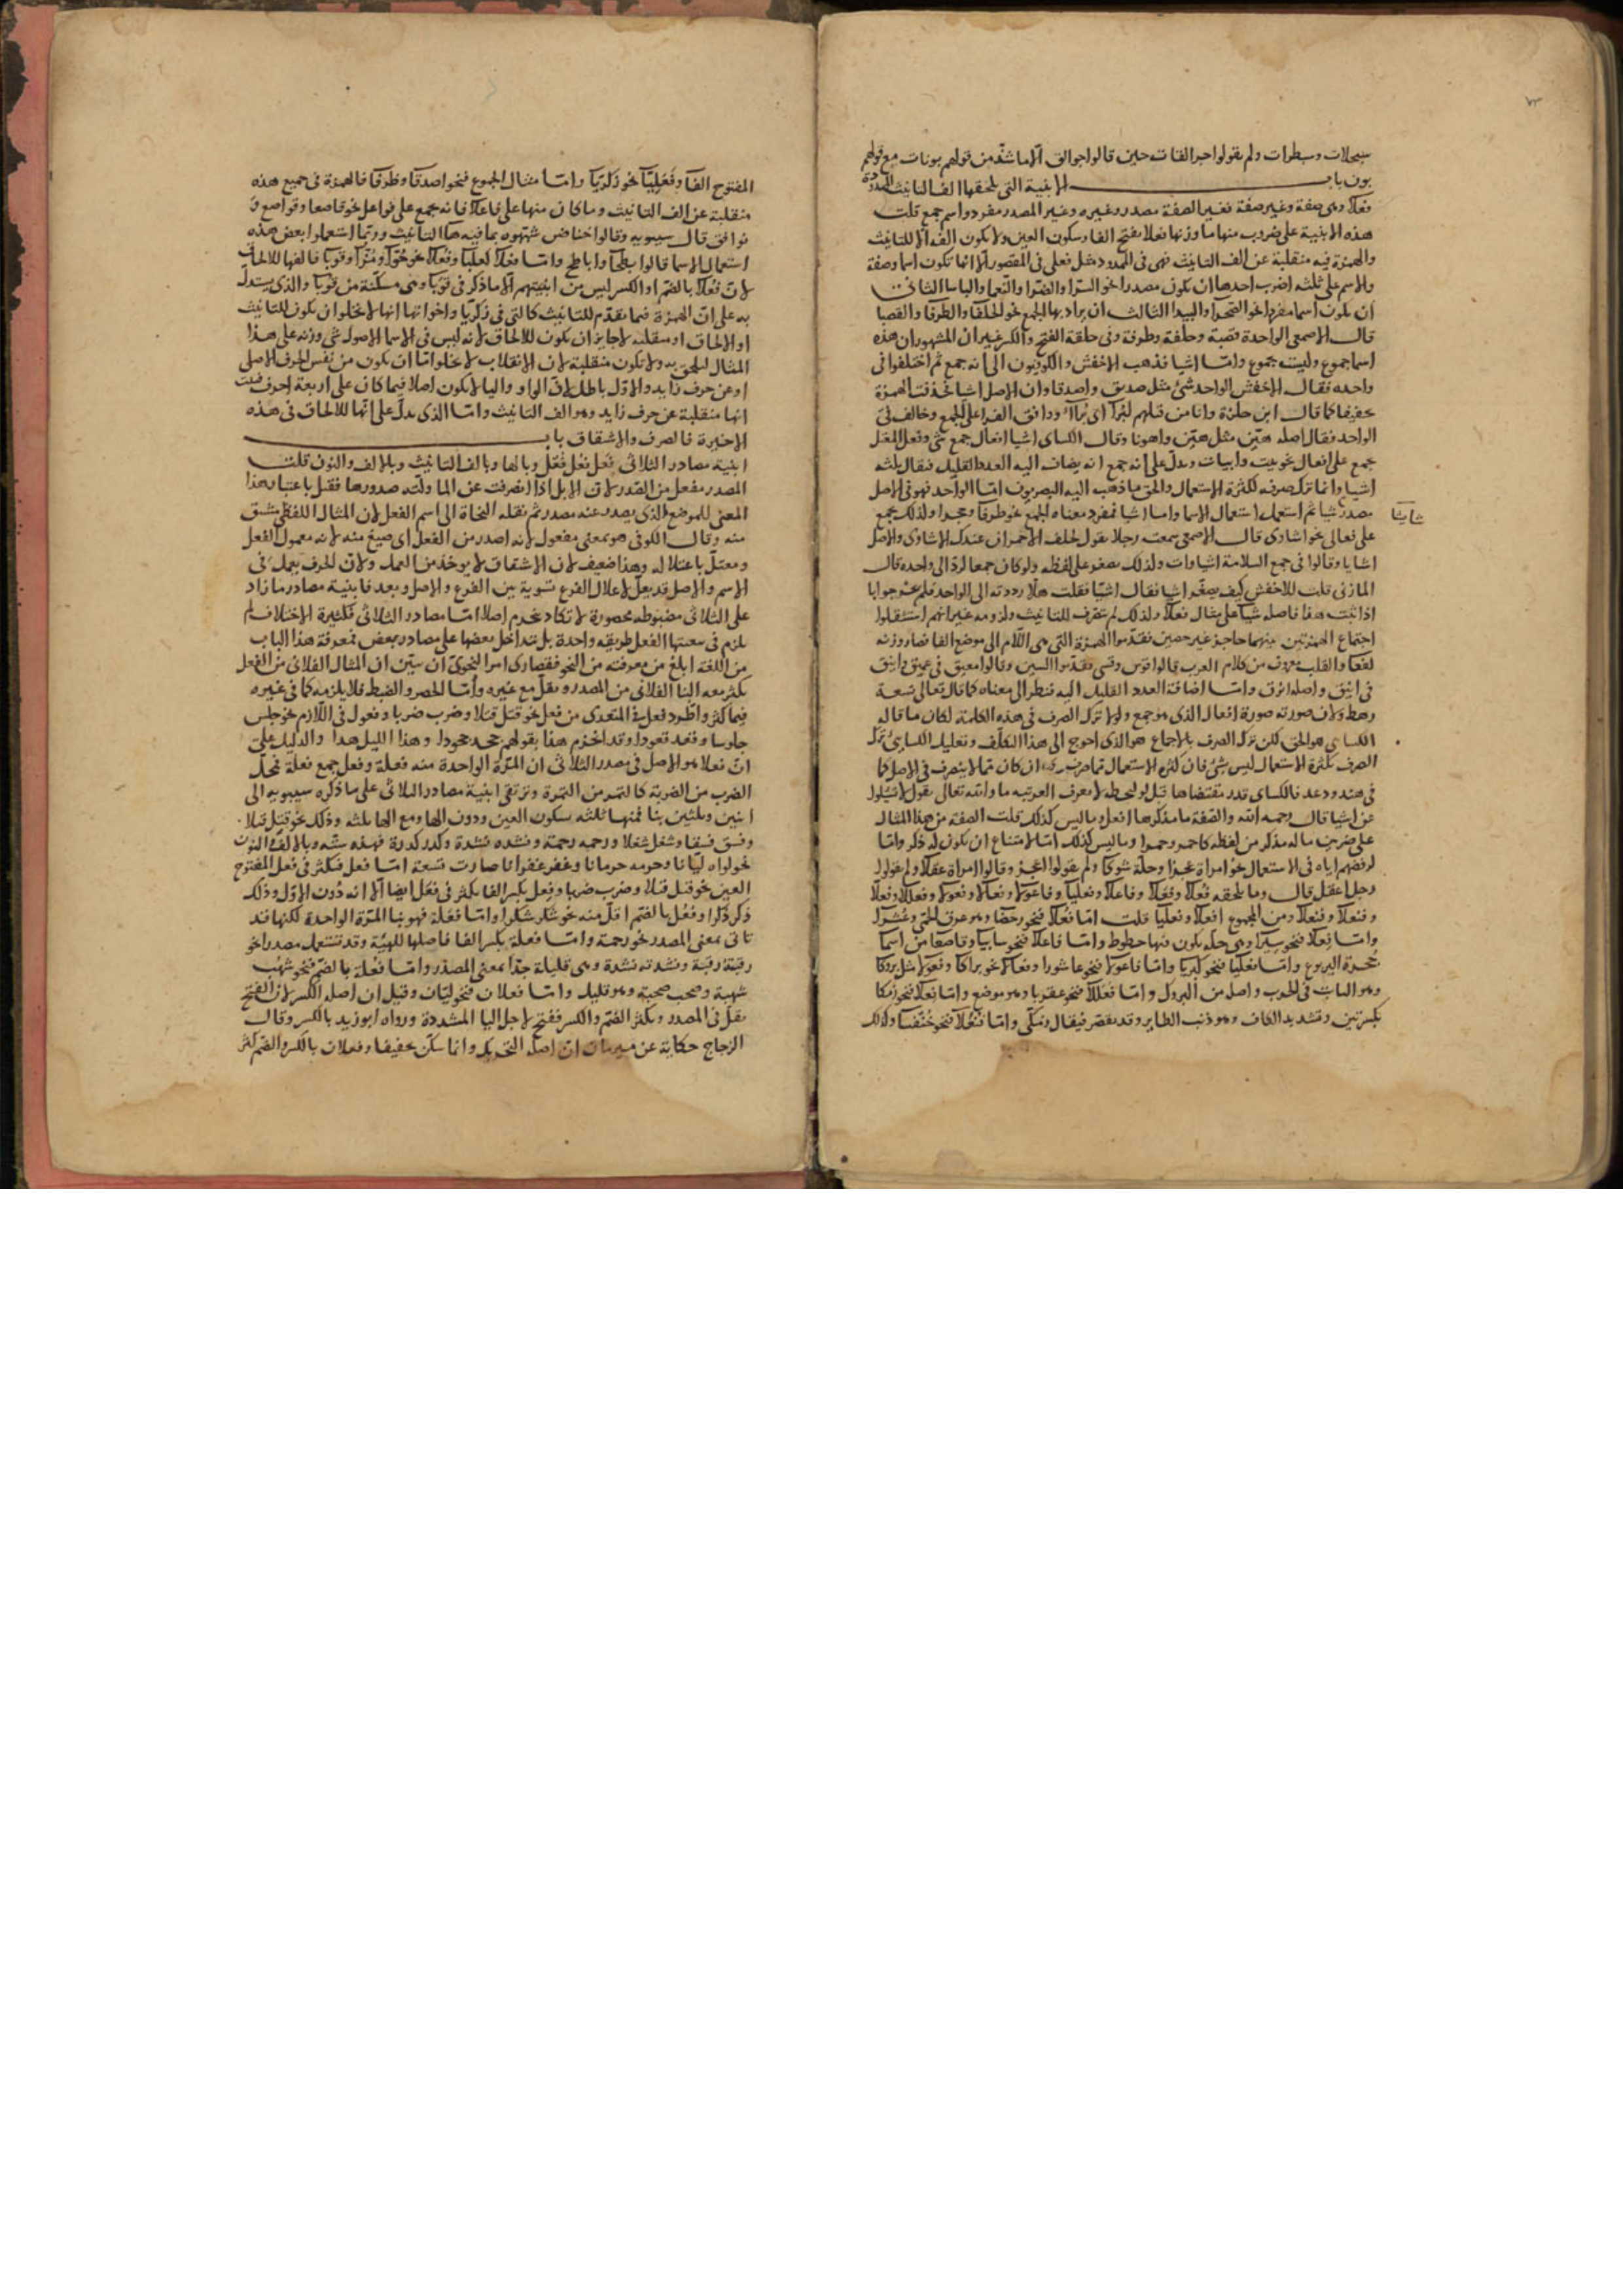 ٧٣
سبحلات وسبطرات ولم يقولوا جوالقات حين قالوا جواليق الا ما شذ من قولهم بونات مع قولهم
بون باب الابنية التي تلحقها الف التانيث الممدودة
فعلا وهي صفة وغير صفة فغير الصفة مصدر وغيره وغير المصدر مفرد واسم جمع قلت
هذه الابنية على ضروب منها ما وزنها فعلا بفتح الفا وسكون العين ولا يكون الفه الا للتانيث
والهمزة فيه منقلبة عن الف التانيث فهي في الممدود مثل فعلى في المقصور الا انها تكون اسما وصفة
والاسم على ثلثه اضرب احدها ان يكون مصدرا نحو السرا والضرا والنعما والباسا الثاني
ان يكون اسما مفردا نحو الصحرا والبيدا الثالث ان يراد بها الجمع نحو الحلفا والطرفا والقصبا
قال الاصمعي الواحدة قصبة وحلفة وطرفة وفي حلفة الفتح والكسر غير ان المشهور ان هذه
اسما جموع وليست جموع واما اشيا فذهب الاخفش والكوفيون الى انه جمع ثم اختلفوا في
واحده فقال الاخفش الواحد شئ مثل صديق واصدقا وان الاصل اشيا فحذفت الهمزة
تخفيفا كما قال ابن حلزة وانا من قتلهم لبرا اي برآ ووافق الفرا على الجمع وخالف في
الواحد فقال اصله هين مثل هين واهونا وقال الكساى اشيا افعال جمع شئ وفعل المعتل
جمع على افعال نحو بيت وابيات ويدل على انه جمع انه يضاف اليه العدد القليل فيقال ثلثه
اشيا وانما ترك صرفه لكثرة الاستعمال والحق ما ذهب اليه البصريون اما الواحد فهو في الاصل
مصدر شيا ثم استعمل استعمال الاسما واما اشيا فمفرد معناه الجمع نحو طرفا وحجرا ولذلك يجمع
على فعالى نحو اشاوى قال الاصمعي سمعت رجلا يقول لخلف الاحمر ان عندك لاشاوى والاصل
اشايا وقالوا في جمع السلامة اشياوات ولذلك يصغر على لفظه ولو كان جمعا لرد الى واحده قال
المازني قلت للاخفش كيف يصغر اشيا فقال اشيا فقلت هلا رددته الى الواحد فلم يحر جوابا
اذا ثبت هذا فاصله شيا على مثال فعلا ولذلك لم تصرف للتانيث ولزومه غير انهم استثقلوا
اجتماع الهمزتين بينهما حاجز غير حصين فقدموا الهمزة التي هي اللام الى موضع الفا فصار وزنه
لفعا والقلب معروف من كلام العرب قالوا قوس وقسي فقدموا السين وقالوا معيق في عميق واينق
في انيق واصله انوق واما اضافة العدد القليل اليه فنظر الى معناه كما قال تعالى تسعة
رهط ولان صورته صورة افعال الذي هو جمع ولولا ترك الصرف في هذه الكلمة لكان ما قاله
الكساى هو الحق لكن ترك الصرف بالاجماع هو الذي احوج الى هذا التكلف وتعليل الكساى ترك
الصرف بكثرة الاستعمال ليس بشئ فان كثرة الاستعمال
في هند ودعد
عن اشيا قال رحمه الله والصفة ما مذكرها افعل وما ليس كذلك قلت الصفة من هذا المثال
على ضربين ما له مذكر من لفظه كاحمر وحمرا وما ليس كذلك اما لامتناع ان يكون له ذكر واما
لرفضهم اياه في الاستعمال نحو امراة عجزا وحلة شوكا ولم يقولوا اعجز وقالوا امراة عقلا ولم يقولوا
رجل اعقل قال وما تلحقه فعلا وفعلا وفاعلا وفعليا وفاعولا وفعالا وفعولا وفعللا وفعلا
وفنعلا وفنعلا ومن الجموع افعلا وفعليا قلت اما فعلا فنحو رحضا وهو عرق الحمى وعشرا
واما فعلا فنحو سيرا وهي حلة يكون فيها خطوط واما فاعلا فنحو سابيا وقاصعا من اسما
جحرة اليربوع واما فعليا فنحو كبريا واما فاعولا فنحو عاشورا وفعالا نحو براكا وفعولا مثل بروكا
وهو الثبات في الحرب واصله من البروك واما فعللا فنحو عقربا وهو موضع واما فعلا فنحو زمكا
بكسرتين وتشديد الكاف وهو ذنب الطاير وقد يقصر فيقال زمكى واما فنعلا فنحو خنفسا وكذلك
المفتوح الفا وفعليا نحو زكريا واما مثال الجموع فنحو اصدقا وظرفا فالهمزة في جميع هذه
منقلبة عن الف التانيث وما كان منها على فاعلا فانه يجمع على فواعل نحو قاصعا وقواصع و
نوافق قال سيبويه وقالوا خنافس شبهوه بما فيه ها التانيث وربما استعملوا بعض هذه
استعمال الاسما قالوا بطحا واباطح واما فعلا كعلبا وفعلا نحو حوا ومزا وقوبا فالفها للالحاق
لان فعلا بالضم او الكسر ليس من ابنيتهم الا ما ذكر في قوبا وهي مسكنة من قوبا والذي يستدل
به على ان الهمزة فيما تقدم للتانيث كالتي في زكريا واخواتها انها لا تخلو ان يكون للتانيث
او الالحاق او منقلبة لا جايز ان يكون للالحاق لانه ليس في الاسما الاصول شئ وزنه على هذا
المثال ليلحق به ولا تكون منقلبة لان الانقلاب لا يخلو اما ان يكون من نفس الحرف الاصلي
او عن حرف زايد والاول باطل لان الواو واليا لا يكون اصلا فيما كان على اربعة احرف فثبت
انها منقلبة عن حرف زايد وهو الف التانيث واما الذي يدل على انها للالحاق في هذه
الاخيرة فالصرف والاشتقاق باب
ابنية مصادر الثلاثى فعل فعل فعل وبالها وبالف التانيث وبالالف والنون قلت
المصدر مفعل من الصدر لان الابل اذا انصرفت عن الما ولته صدورها فقيل باعتبار هذا
المعنى للموضع الذي يصدر عنه مصدر ثم نقله النحاة الى اسم الفعل لان المثال اللفظي مشتق
منه وقال الكوفي هو بمعنى مفعول لانه اصدر من الفعل اي صيغ منه لانه معمول الفعل
ومعتل باعتلاله وهذا ضعيف لان الاشتقاق لا يوخذ من العمل ولان الحرف يعمل في
الاسم والاصل قد يعل لاعلال الفرع تسوية بين الفرع والاصل وبعد فابنية مصادر ما زاد
على الثلاثى مضبوطه محصورة لا تكاد تنخرم اصلا اما مصادر الثلاثى فكثيرة الاختلاف لم
يلزم في سعتها الفعل طريقه واحدة بل تداخل بعضها على مصادر بعض فمعرفة هذا الباب
من اللغة ابلغ من معرفته من النحو فقصارى امر النحوي ان يبين ان المثال الفلانى من الفعل
يكثر معه البنا الفلانى من المصدر ويقل مع غيره واما الحصر والضبط فلا يلزمه كما في غيره
فمما كثر واطرد فعل في المتعدى من فعل نحو قتل قتلا وضرب ضربا وفعول في اللازم نحو جلس
جلوسا وقعد قعودا وقد انخرم هذا بقولهم جحد جحودا وهذا الليل هدا والدليل على
ان فعلا هو الاصل في مصدر الثلاثى ان المرة الواحدة منه فعلة وفعل جمع فعلة فحل
الضرب من الضربة كالتمر من التمرة وترتقي ابنية مصادر الثلاثى على ما ذكره سيبويه الى
اثنين وثلثين بنا فمنها ثلثه بسكون العين ودون الها ومع الها ثلثه وذلك نحو قتل قتلا
وفسق فسقا وشغل شغلا ورحمه رحمة ونشده نشدة وكدر كدرة فهذه سته وبالالف والنون
نحو لواه ليانا وحرمه حرمانا وغفر غفرانا صارت تسعة اما فعل فيكثر في فعل المفتوح
العين نحو قتل قتلا وضرب ضربا وفعل بكسر الفا يكثر في فعل ايضا الا انه دون الاول وذلك
ذكر ذكرا وفعل بالضم اقل منه نحو شكر شكرا واما فعلة فهو بنا المرة الواحدة لكنها قد
تاتى بمعنى المصدر نحو رحمة واما فعلة بكسر الفا فاصلها للهيئة وقد تستعمل مصدرا نحو
رقبة رقبة ونشدته نشدة وهي قليلة جدا بمعنى المصدر واما فعلة بالضم فنحو شهب
شهبة وصحب صحبة وهو قليل واما فعلان فنحو ليان وقيل ان اصله الكسر لان الفتح
يقل في المصدر ويكثر الضم والكسر ففتح لاجل اليا المشددة ورواه ابو زيد بالكسر وقال
الزجاج حكاية عن ان اصله التحريك وانما سكن تخفيفا وفعلان بالكسر والضم اكثر